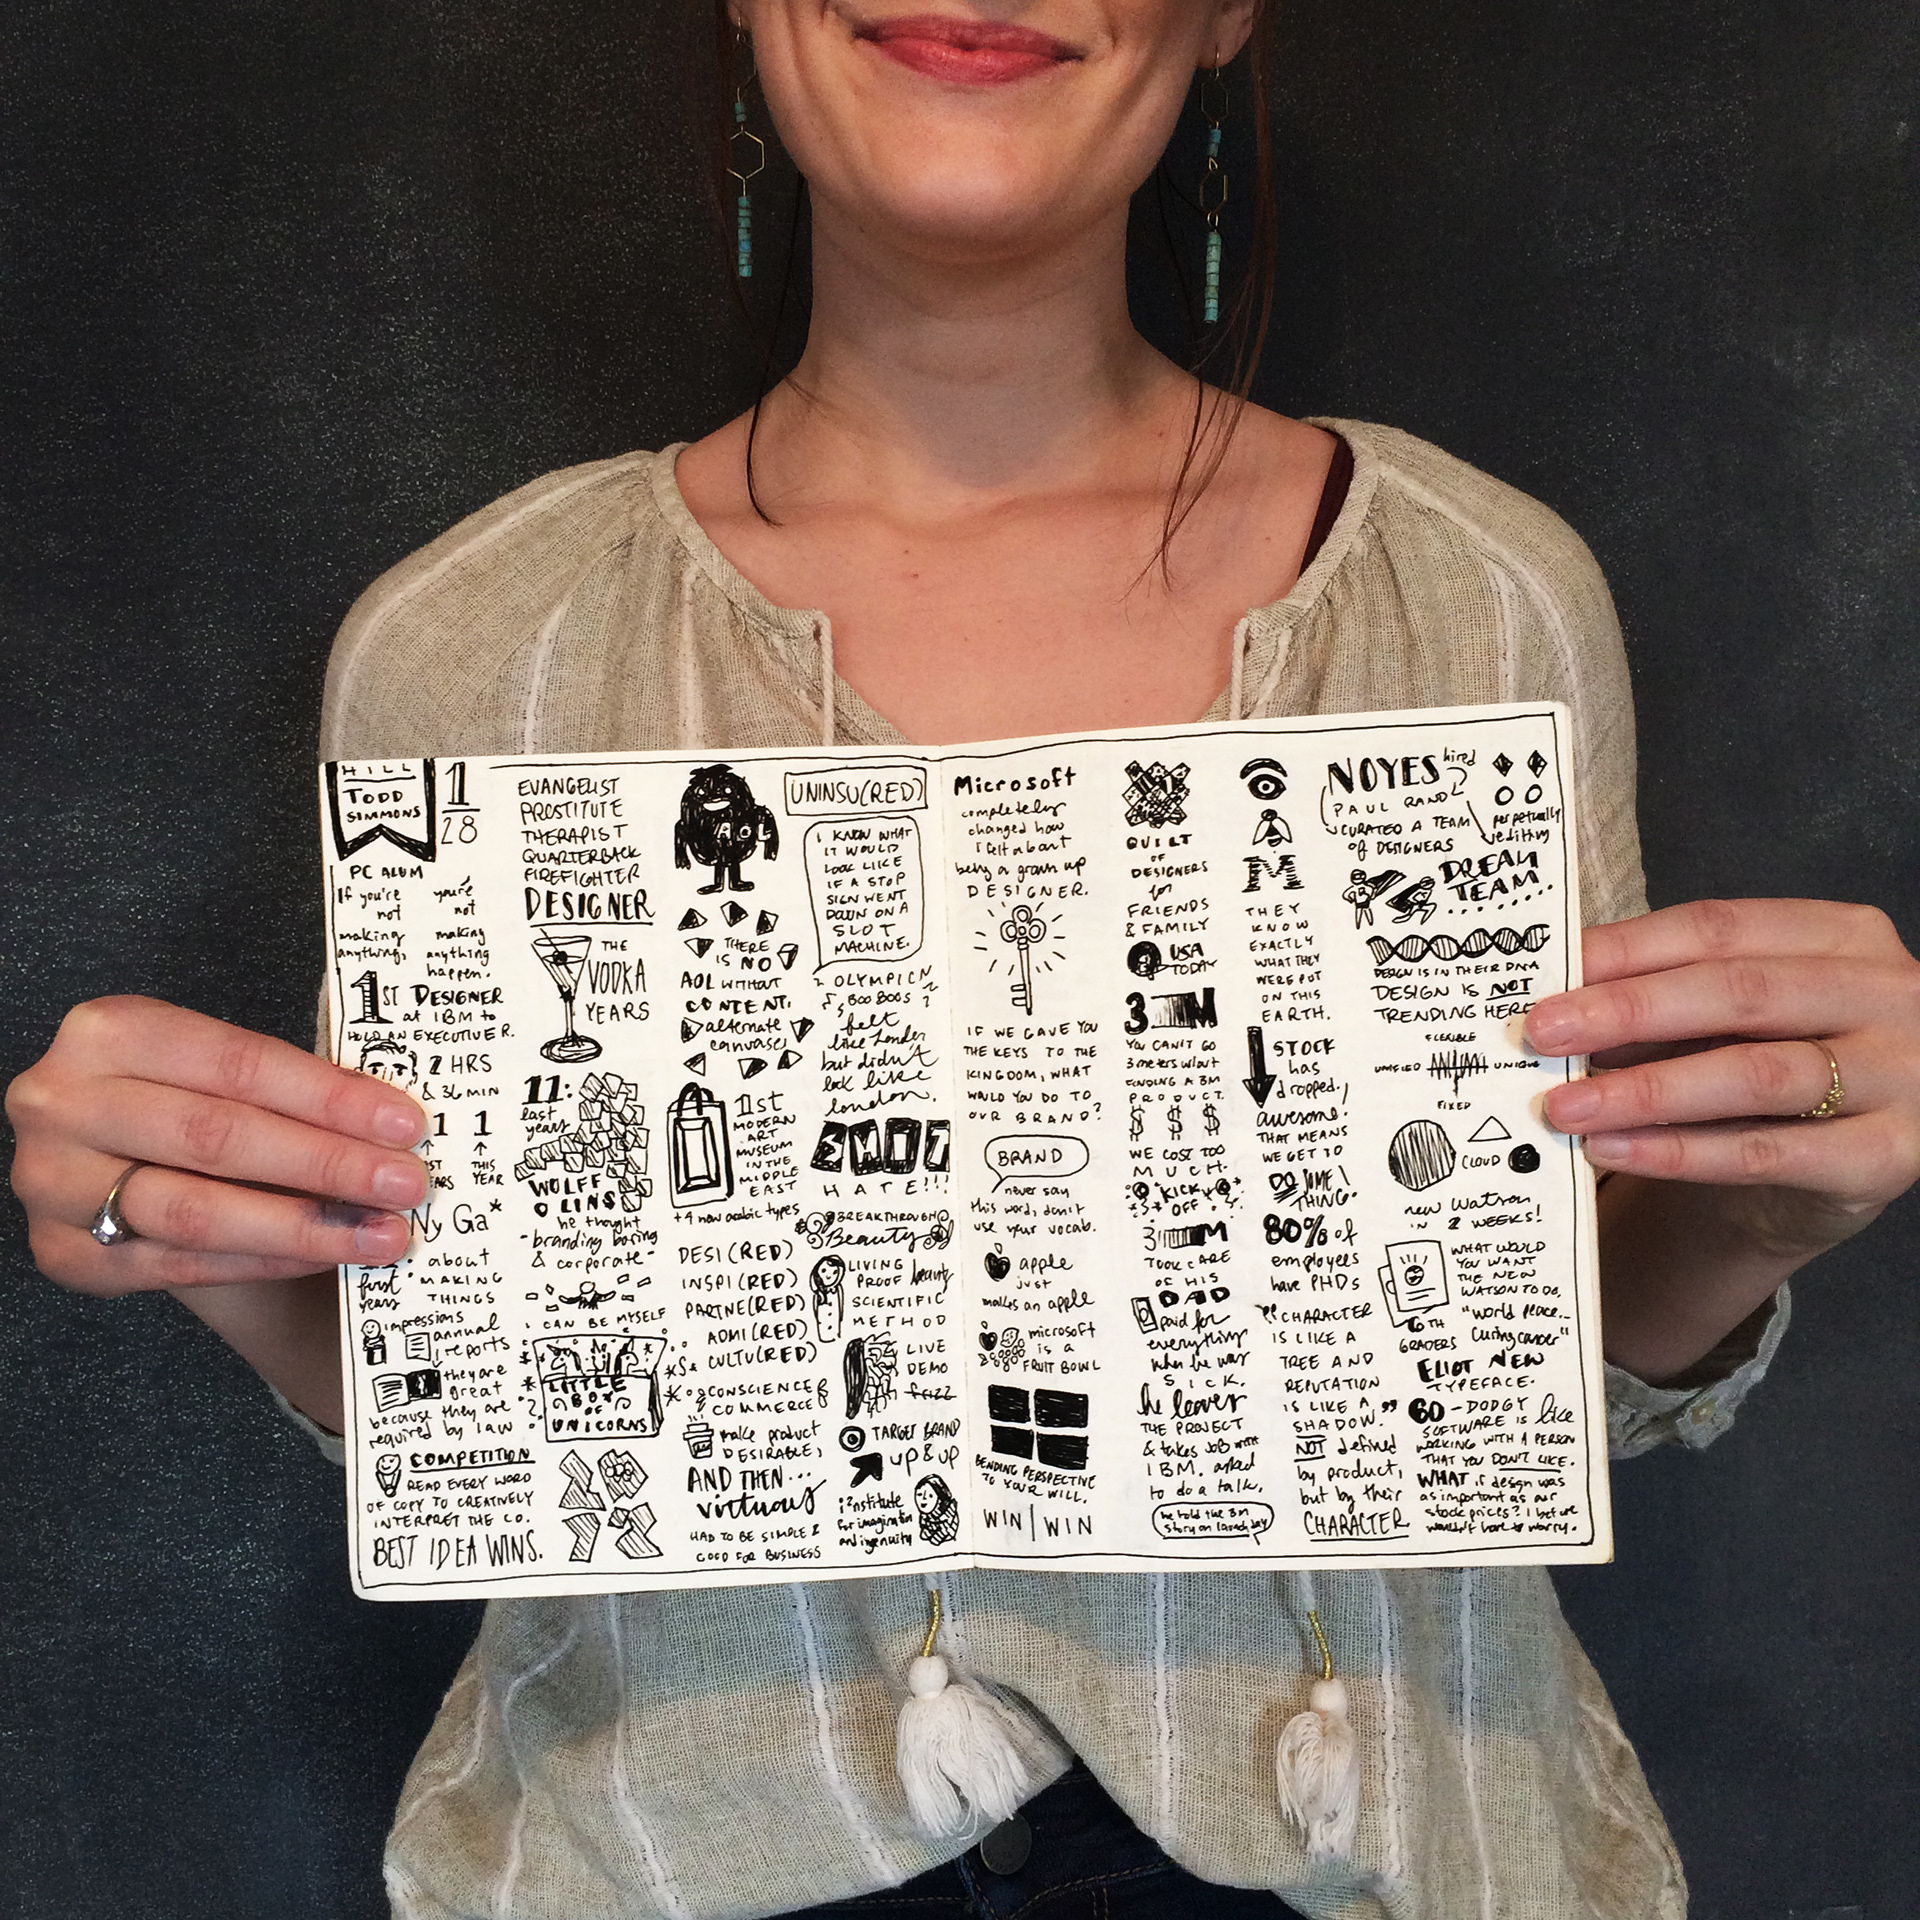 HILL
TODD
SIMMONS
1
28
PC ALUM
If you're
not
making
anything,
you're
not
making
anything
happen.
1ST DESIGNER
at IBM to
HOLD AN EXECUTIVE R.
2 HRS
& 36 MIN
1 1
THIS
YEAR
Ny Ga*
about
MAKING
THINGS
first
years
impressions
annual
reports
they are
great
because they are
required by law
COMPETITION
READ EVERY WORD
OF COPY TO CREATIVELY
INTERPRET THE CO.
BEST IDEA WINS.
EVANGELIST
PROSTITUTE
THERAPIST
QUARTERBACK
FIREFIGHTER
DESIGNER
THE
VODKA
YEARS
11:
last
years
WOLFF
OLINS
he thought
-branding boring
& corporate-
I CAN BE MYSELF
LITTLE
BOX
OF
UNICORNS
AOL
THERE
IS NO
AOL WITHOUT
CONTENT.
alternate
canvases
1st
MODERN
ART
MUSEUM
IN THE
MIDDLE
EAST
+4 new arabic types
DESI(RED)
INSPI(RED)
PARTNE(RED)
ADMI(RED)
CULTU(RED)
CONSCIENCE &
COMMERCE
make product
DESIRABLE,
AND THEN...
virtuous
HAD TO BE SIMPLE &
GOOD FOR BUSINESS
UNINSU(RED)
I KNOW WHAT
IT WOULD
LOOK LIKE
IF A STOP
SIGN WENT
DOWN ON A
SLOT
MACHINE.
OLYMPICS
BOO BOOS
felt
like London
but didn't
look like
london.
HATE!!!
BREAKTHROUGH
Beauty
LIVING
PROOF beauty
SCIENTIFIC
METHOD
LIVE
DEMO
frizz
TARGET BRAND
up & up
institute
for imagination
and ingenuity
Microsoft
completely
changed how
I felt about
being a grown up
DESIGNER.
IF WE GAVE YOU
THE KEYS TO THE
KINGDOM, WHAT
WOULD YOU DO TO
OUR BRAND?
BRAND
never say
this word, don't
use your vocab.
apple
just
makes an apple
microsoft
is a
FRUIT BOWL
BENDING PERSPECTIVE
TO YOUR WILL.
WIN | WIN
QUILT
OF
DESIGNERS
for
FRIENDS
& FAMILY
USA
TODAY
3M
YOU CAN'T GO
3 meters w/out
FINDING A 3M
PRODUCT.
$ $ $
WE COST TOO
MUCH.
KICK
OFF
3M
TOOK CARE
OF HIS
DAD
paid for
everything
when he was
SICK.
he leaves
THE PROJECT
& takes JOB with
IBM. asked
to do a talk.
he told the 3M
story on launch day
M
THEY
KNOW
EXACTLY
WHAT THEY
WERE PUT
ON THIS
EARTH.
STOCK
has
dropped!
awesome.
THAT MEANS
WE GET TO
DO SOME
THING.
80% of
employees
have PHDs
"CHARACTER
IS LIKE A
TREE AND
REPUTATION
IS LIKE A
SHADOW."
NOT defined
by product,
but by their
CHARACTER
NOYES hired
PAUL RAND
CURATED A TEAM
OF DESIGNERS
perpetually
editing
DREAM
TEAM......
DESIGN IS IN THEIR DNA
DESIGN IS NOT
TRENDING HERE
FLEXIBLE
UNIFIED UNIQUE
FIXED
CLOUD
new Watson
IN 2 WEEKS!
WHAT WOULD
YOU WANT
THE NEW
WATSON TO DO.
6TH
GRADERS
"world peace...
curing cancer"
ELIOT NEW
TYPEFACE.
60-DODGY
SOFTWARE IS like
WORKING WITH A PERSON
THAT YOU DON'T LIKE.
WHAT if design was
as important as our
stock prices? I bet we
wouldn't have to worry.